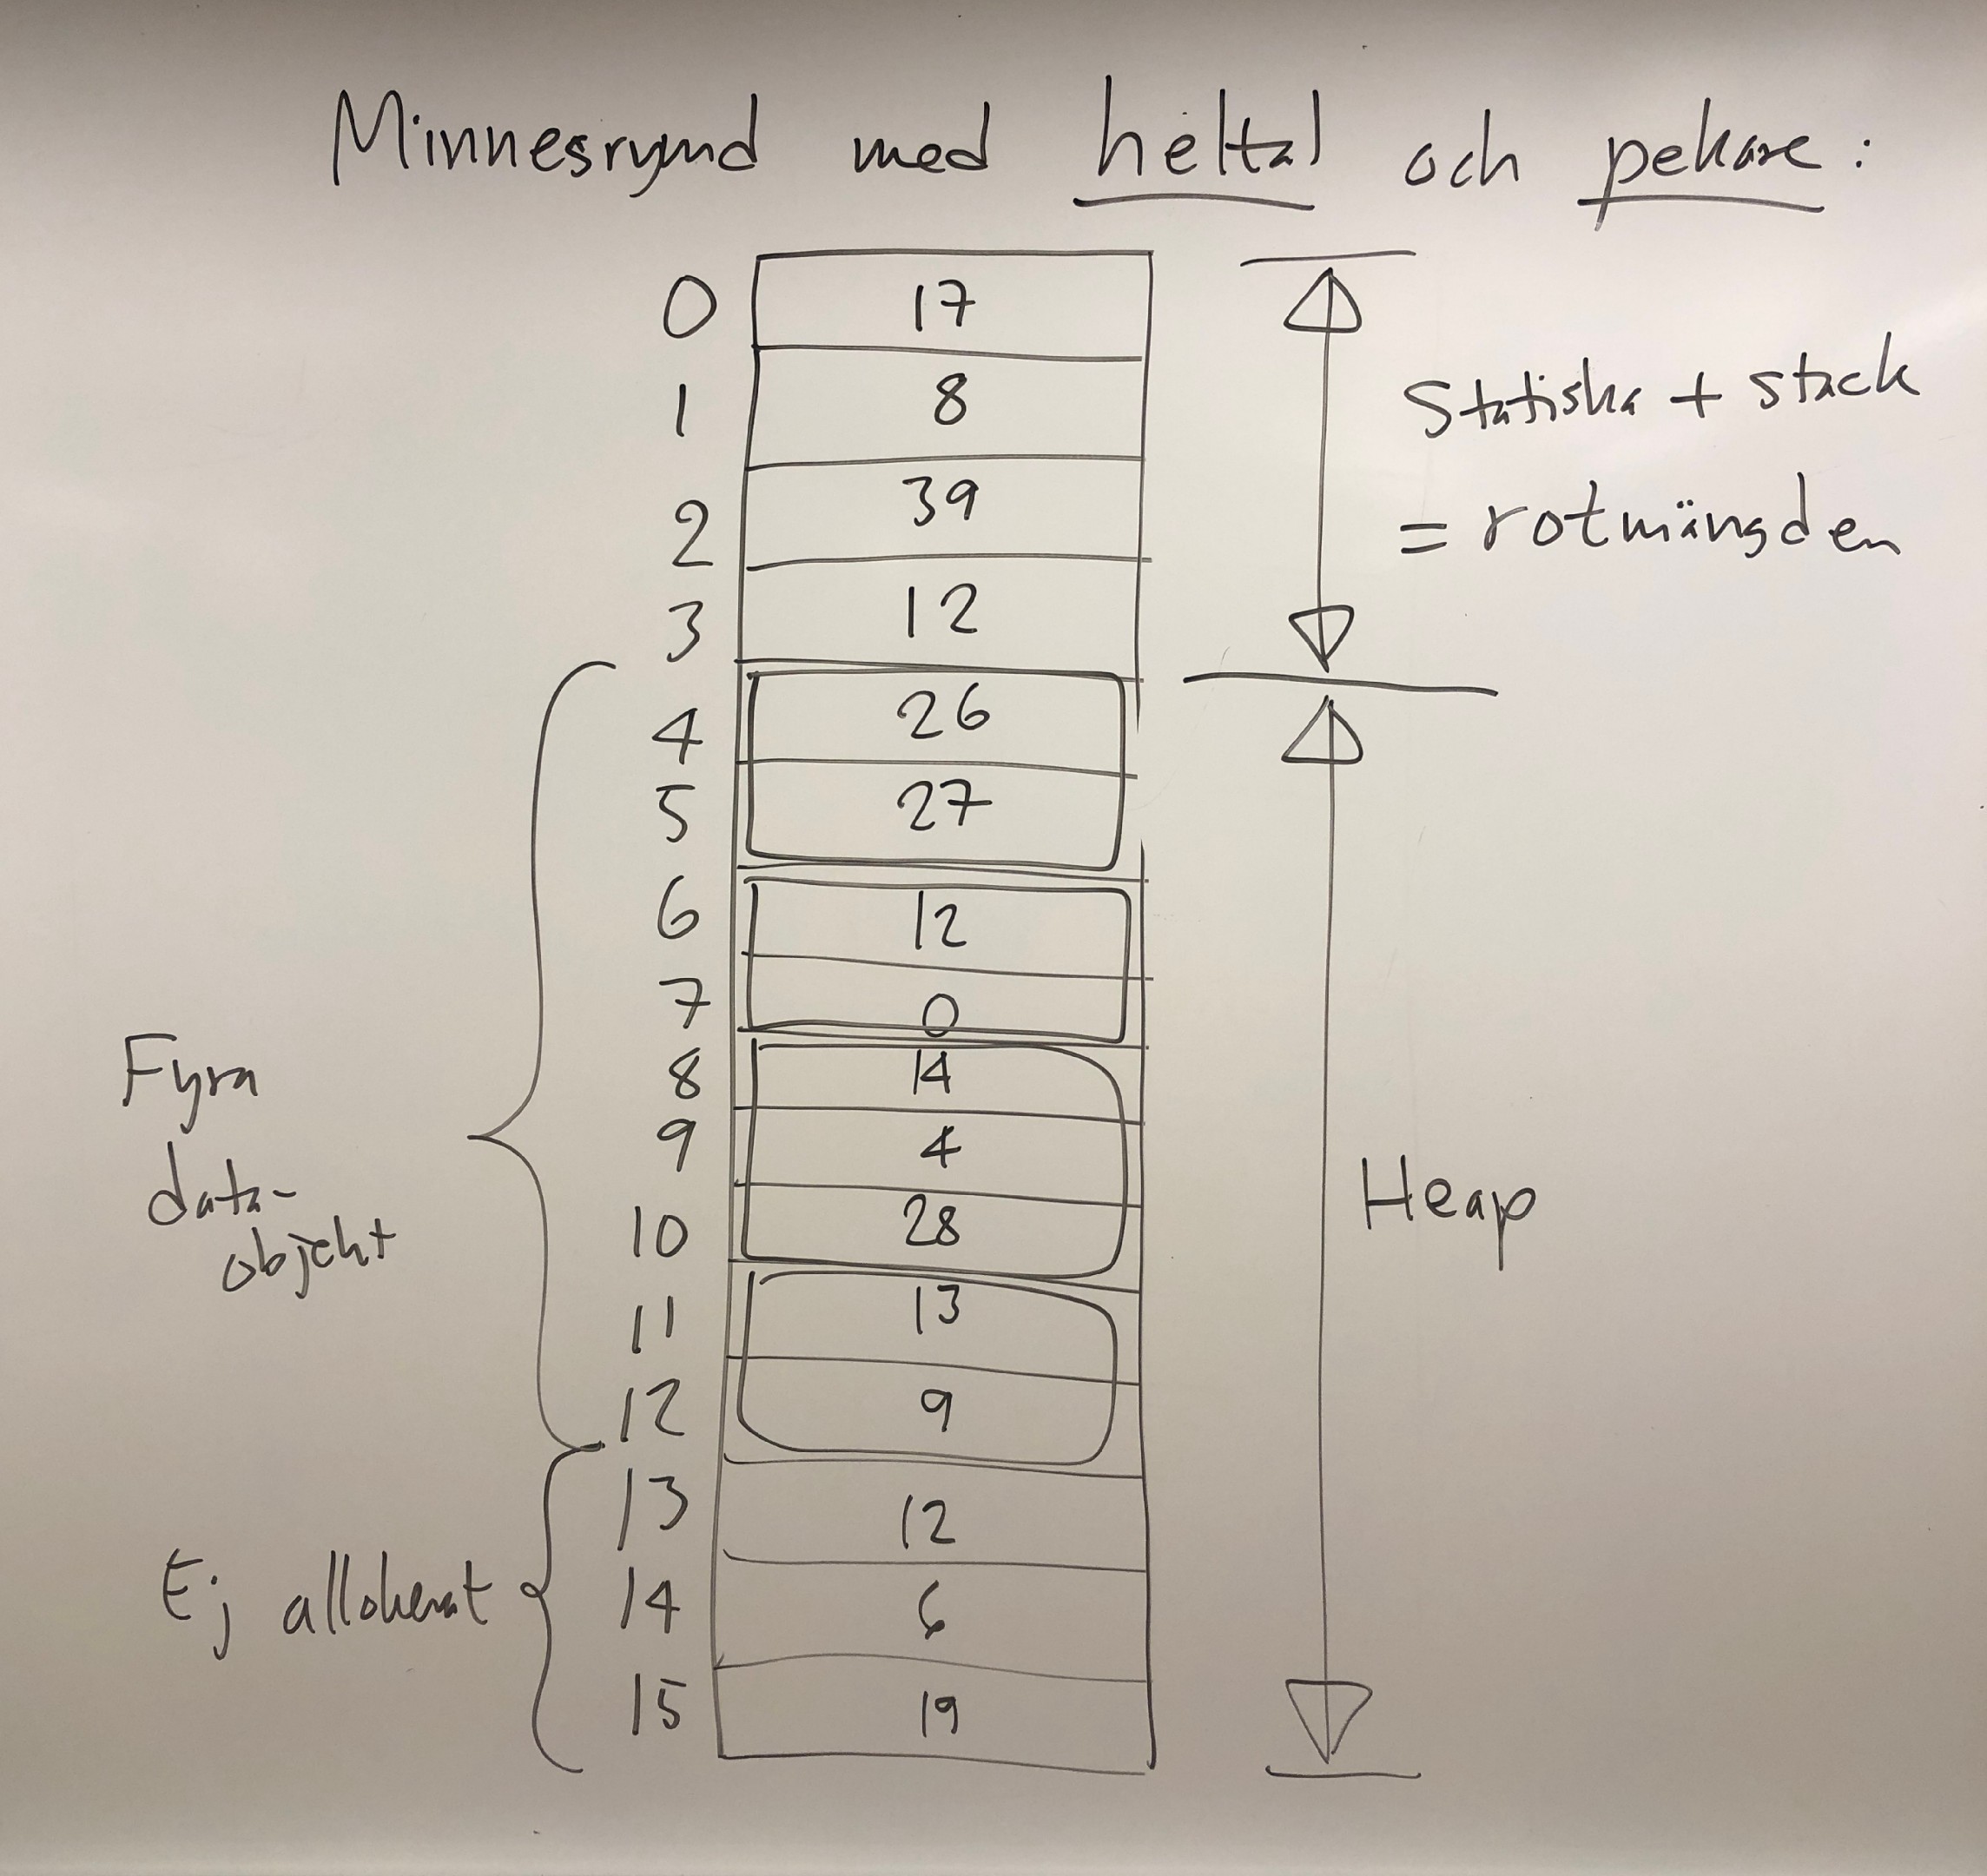 Minnesrymd med heltal och pekare:
0 17
1 8
2 39
3 12
Statiska + stack
= rotmängden
4 26
5 27
6 12
7 0
8 14
9 4
10 28
11 13
12 9
Fyra
data-
objekt
Heap
13 12
14 6
15 19
Ej allokerat